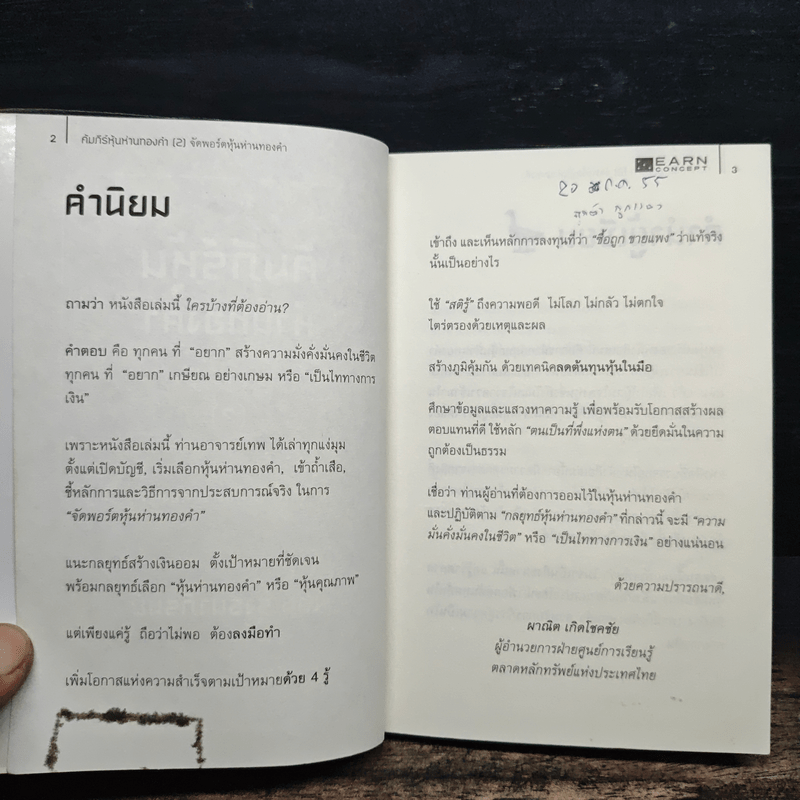 2 คัมภีร์หุ้นห่านทองคำ (2) จัดพอร์ตหุ้นห่านทองคำ
คำนิยม
ถามว่า หนังสือเล่มนี้ ใครบ้างที่ต้องอ่าน?
คำตอบ คือ ทุกคน ที่ “อยาก” สร้างความมั่งคั่งมั่นคงในชีวิต
ทุกคน ที่ “อยาก” เกษียณ อย่างเกษม หรือ “เป็นไททางการ
เงิน”
เพราะหนังสือเล่มนี้ ท่านอาจารย์เทพ ได้เล่าทุกแง่มุม
ตั้งแต่เปิดบัญชี, เริ่มเลือกหุ้นห่านทองคำ, เข้าถ้ำเสือ,
ชี้หลักการและวิธีการจากประสบการณ์จริง ในการ
“จัดพอร์ตหุ้นห่านทองคำ”
แนะกลยุทธ์สร้างเงินออม ตั้งเป้าหมายที่ชัดเจน
พร้อมกลยุทธ์เลือก “หุ้นห่านทองคำ” หรือ “หุ้นคุณภาพ”
แต่เพียงแค่รู้ ถือว่าไม่พอ ต้องลงมือทำ
เพิ่มโอกาสแห่งความสำเร็จตามเป้าหมายด้วย 4 รู้
EARN
CONCEPT
3
20 ก.ค. 55
เข้าถึง และเห็นหลักการลงทุนที่ว่า “ซื้อถูก ขายแพง” ว่าแท้จริง
นั้นเป็นอย่างไร
ใช้ “สติรู้” ถึงความพอดี ไม่โลภ ไม่กลัว ไม่ตกใจ
ไตร่ตรองด้วยเหตุและผล
สร้างภูมิคุ้มกัน ด้วยเทคนิคลดต้นทุนหุ้นในมือ
ศึกษาข้อมูลและแสวงหาความรู้ เพื่อพร้อมรับโอกาสสร้างผล
ตอบแทนที่ดี ใช้หลัก “ตนเป็นที่พึ่งแห่งตน” ด้วยยึดมั่นในความ
ถูกต้องเป็นธรรม
เชื่อว่า ท่านผู้อ่านที่ต้องการออมไว้ในหุ้นห่านทองคำ
และปฏิบัติตาม “กลยุทธ์หุ้นห่านทองคำ” ที่กล่าวนี้ จะมี “ความ
มั่นคั่งมั่นคงในชีวิต” หรือ “เป็นไททางการเงิน” อย่างแน่นอน
ด้วยความปรารถนาดี,
ผาณิต เกิดโชคชัย
ผู้อำนวยการฝ่ายศูนย์การเรียนรู้
ตลาดหลักทรัพย์แห่งประเทศไทย